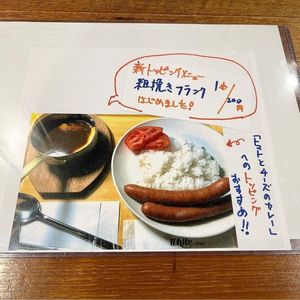 新トッピングメニュー
粗挽きフランク
はじめました!
1本/200円
「トマトとチーズのカレー」
へのトッピング
おすすめ!!